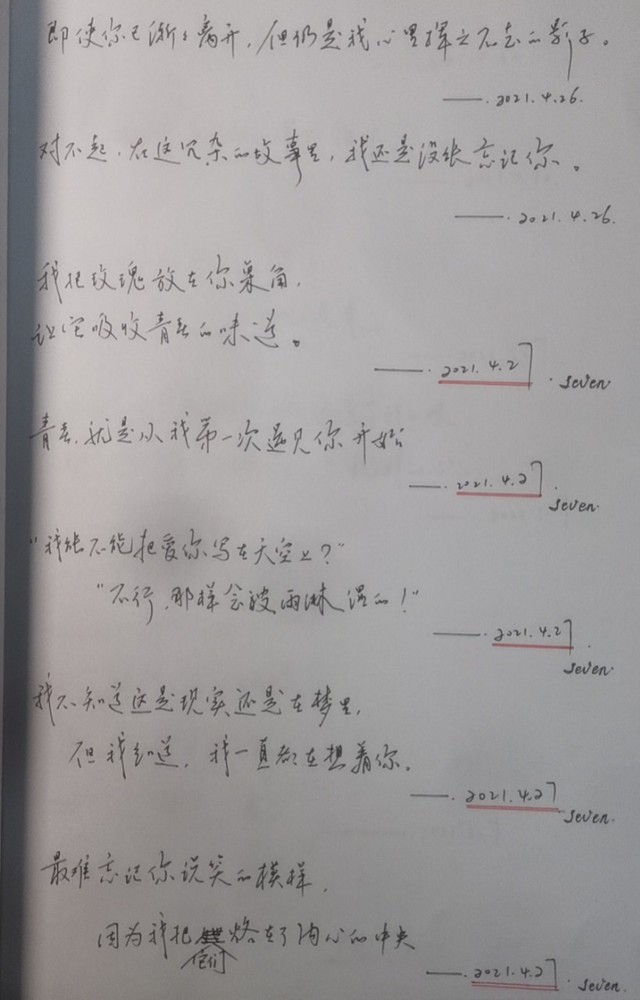 即使你已渐渐离开，但仍是我心里挥之不去的影子。
——. 2021.4.26.
对不起，在这冗杂的故事里，我还是没能忘记你。
——. 2021.4.26.
我把玫瑰放在你桌角，
让它吸收青春的味道。
——. 2021.4.27 . seven.
青春，就是从我第一次遇见你开始
——. 2021.4.27 . seven.
“我能不能把爱你写在天空上？”
“不行，那样会被雨淋湿的！”
——. 2021.4.27 . seven.
我不知道这是现实还是在梦里，
但我知道，我一直都在想着你。
——. 2021.4.27 seven.
最难忘记你说笑的模样，
因为我把它们烙在了内心的中央
——. 2021.4.27 . seven.